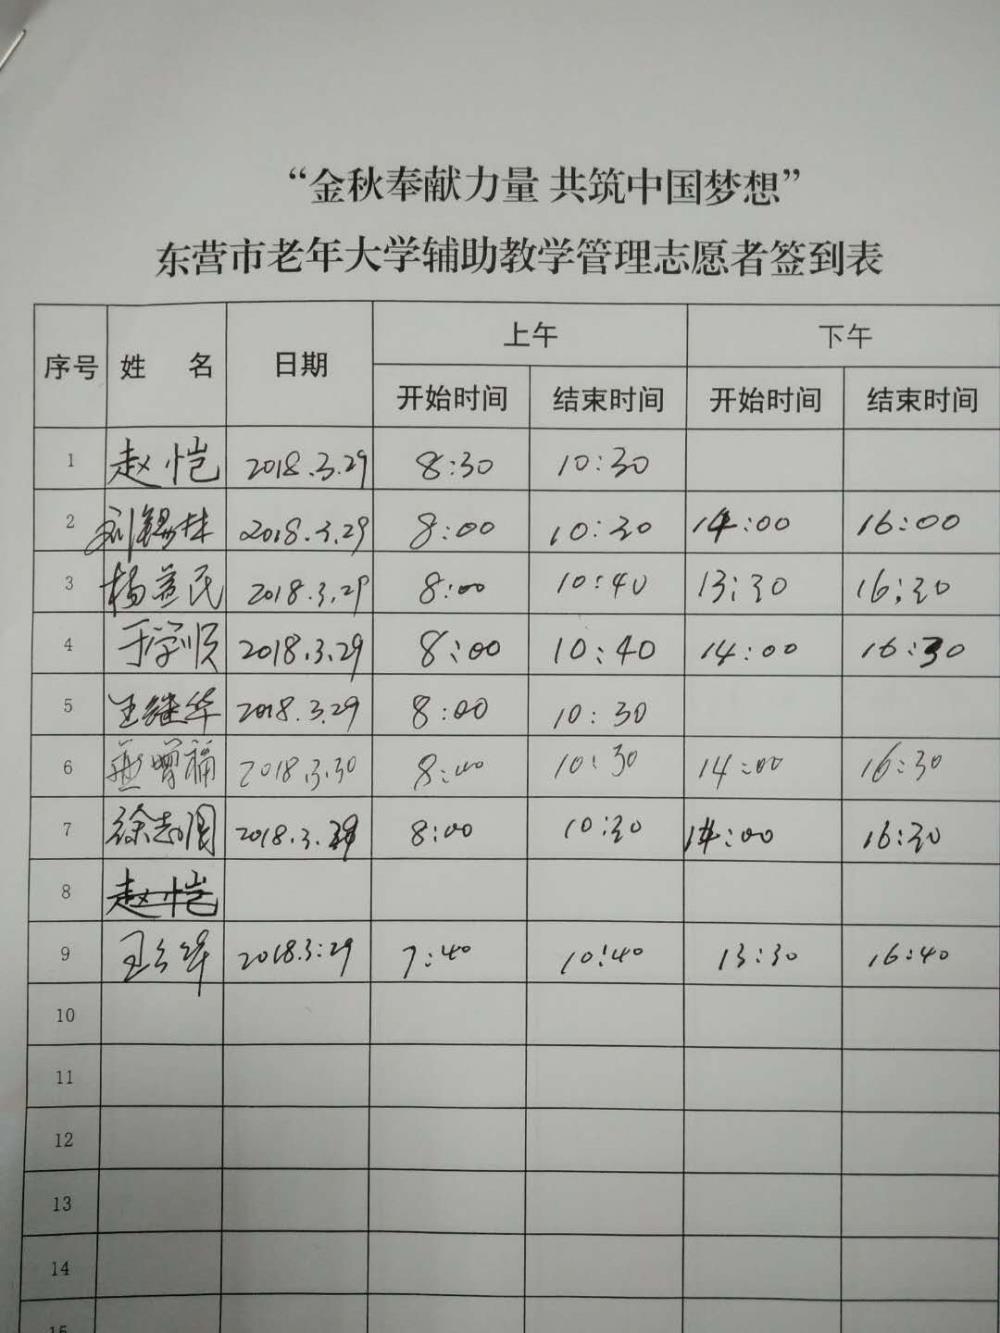 “金秋奉献力量 共筑中国梦想”
东营市老年大学辅助教学管理志愿者签到表
序号 姓 名 日期 上午 下午
开始时间 结束时间 开始时间 结束时间
1 赵恺 2018.3.29 8:30 10:30
2 刘锡林 2018.3.29 8:00 10:30 14:00 16:00
3 杨益民 2018.3.29 8:00 10:40 13:30 16:30
4 于学顺 2018.3.29 8:00 10:40 14:00 16:30
5 王继华 2018.3.29 8:00 10:30
6 增福 2018.3.30 8:40 10:30 14:00 16:30
7 徐志 2018.3.29 8:00 10:30 14:00 16:30
8 赵恺
9 王 华 2018.3:29 7:40 10:40 13:30 16:40
10
11
12
13
14
15